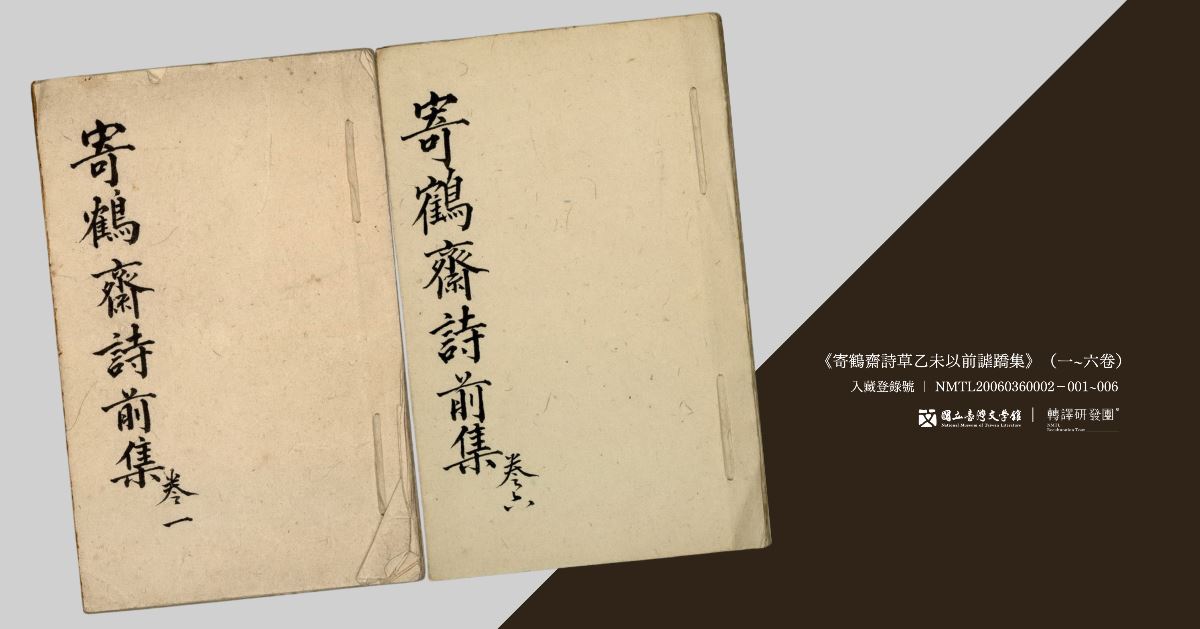 寄鶴齋詩前集
卷一
寄鶴齋詩前集
卷六
《寄鶴齋詩草乙未以前謔蹻集》（一~六卷）
入藏登錄號 | NMTL20060360002－001~006
國立臺灣文學館 | 轉譯研發團
National Museum of Taiwan Literature
NMTL